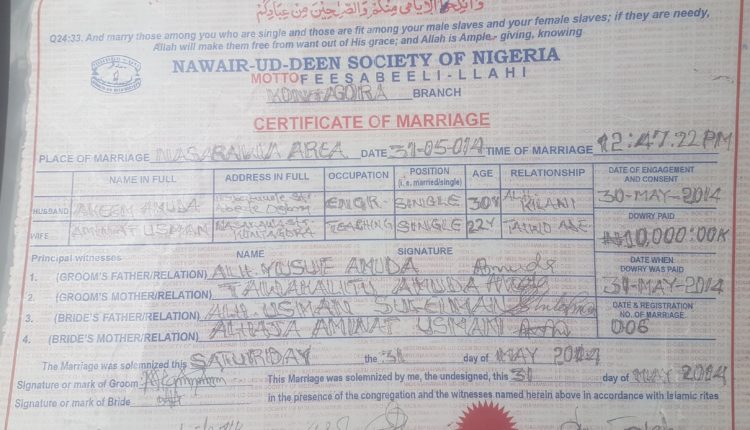 وأنكحوا الأيامى منكم والصالحين من عبادكم
Q24:33. And marry those among you who are single and those are fit among your male slaves and your female slaves; if they are needy,
Allah will make them free from want out of His grace; and Allah is Ample,- giving, knowing
NAWAIR-UD-DEEN SOCIETY OF NIGERIA
MOTTO FEESABEELI-LLAHI
KONTAGORA BRANCH
CERTIFICATE OF MARRIAGE
PLACE OF MARRIAGE NASARAWA AREA DATE 31-05-014 TIME OF MARRIAGE 12:47:22 PM
NAME IN FULL ADDRESS IN FULL OCCUPATION POSITION (i.e. married/single) AGE RELATIONSHIP DATE OF ENGAGEMENT AND CONSENT
HUSBAND AKEEM AMUDA ENGR. SINGLE 30Y 30-MAY-2014
WIFE AMINAT USMAN KONTAGORA TEACHING SINGLE 22Y
DOWRY PAID
₦10,000:00K
Principal witnesses NAME SIGNATURE
1. (GROOM'S FATHER/RELATION) ALH. YUSUF AMUDA
2. (GROOM'S MOTHER/RELATION) AMUDA
3. (BRIDE'S FATHER/RELATION) ALH. USMAN SULEIMAN
4. (BRIDE'S MOTHER/RELATION) ALHAJA AMINAT USMAN
DATE WHEN DOWRY WAS PAID
31-MAY-2014
DATE & REGISTRATION NO. OF MARRIAGE
006
The Marriage was solemnized this SATURDAY the 31 day of MAY 2014
Signature or mark of Groom This Marriage was solemnized by me, the undesigned, this 31 day of MAY 2014
Signature or mark of Bride in the presence of the congregation and the witnesses named herein above in accordance with Islamic rites